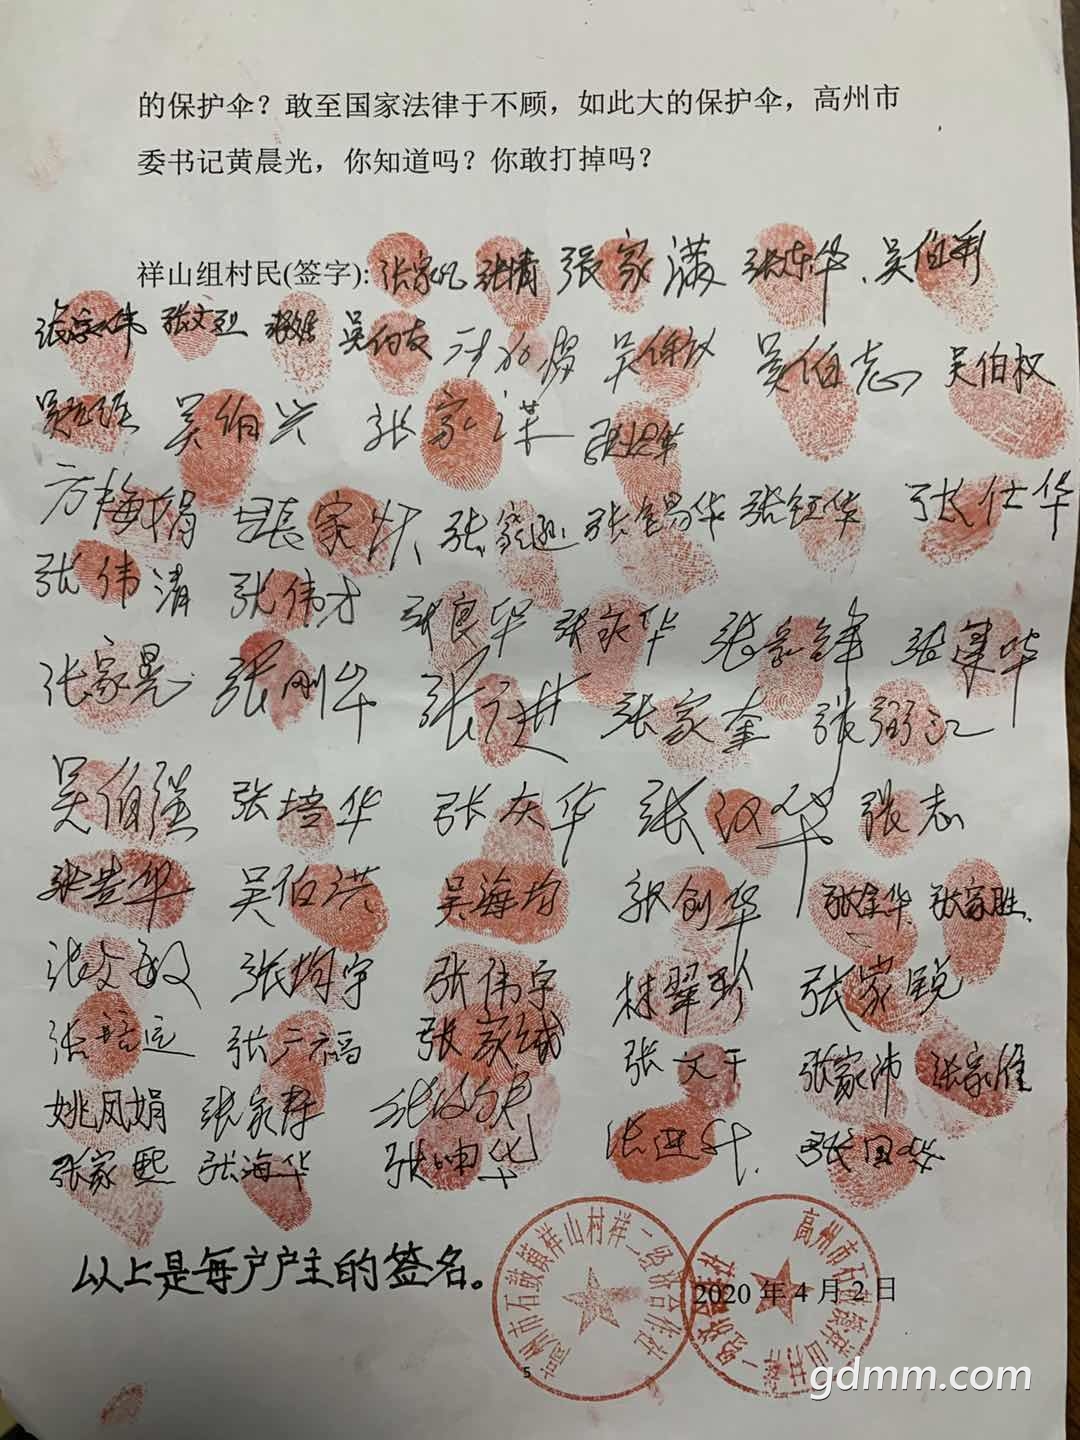 的保护伞？敢至国家法律于不顾，如此大的保护伞，高州市
委书记黄晨光，你知道吗？你敢打掉吗？
祥山组村民(签字): 张家凡 张情 张家满 张东华 吴伯利
张文烈 吴伯友 吴伯志 吴伯权
吴伯兴 张家谋
方梅娟 张家灿 张锡华 张钰华 张仕华
张伟清 张伟才 张良华 张永华 张家锋 张建华
张家晃 张刚华 张广进 张家奎 张弼江
吴伯强 张培华 张庆华 张汉华 张志
张贵华 吴伯洪 吴海均 张创华 张金华 张家胜
张文敏 张均宇 张伟宇 林翠珍 张家锐
张培远 张广福 张家城 张文千 张家沛 张家维
姚凤娟 张家寿 张进升 张国华
张家熙 张海华 张坤华
以上是每户户主的签名。
2020年4月2日
高州市石鼓镇祥山村祥二经济合作社
高州市石鼓镇祥山村祥一经济合作社
5
gdmm.com